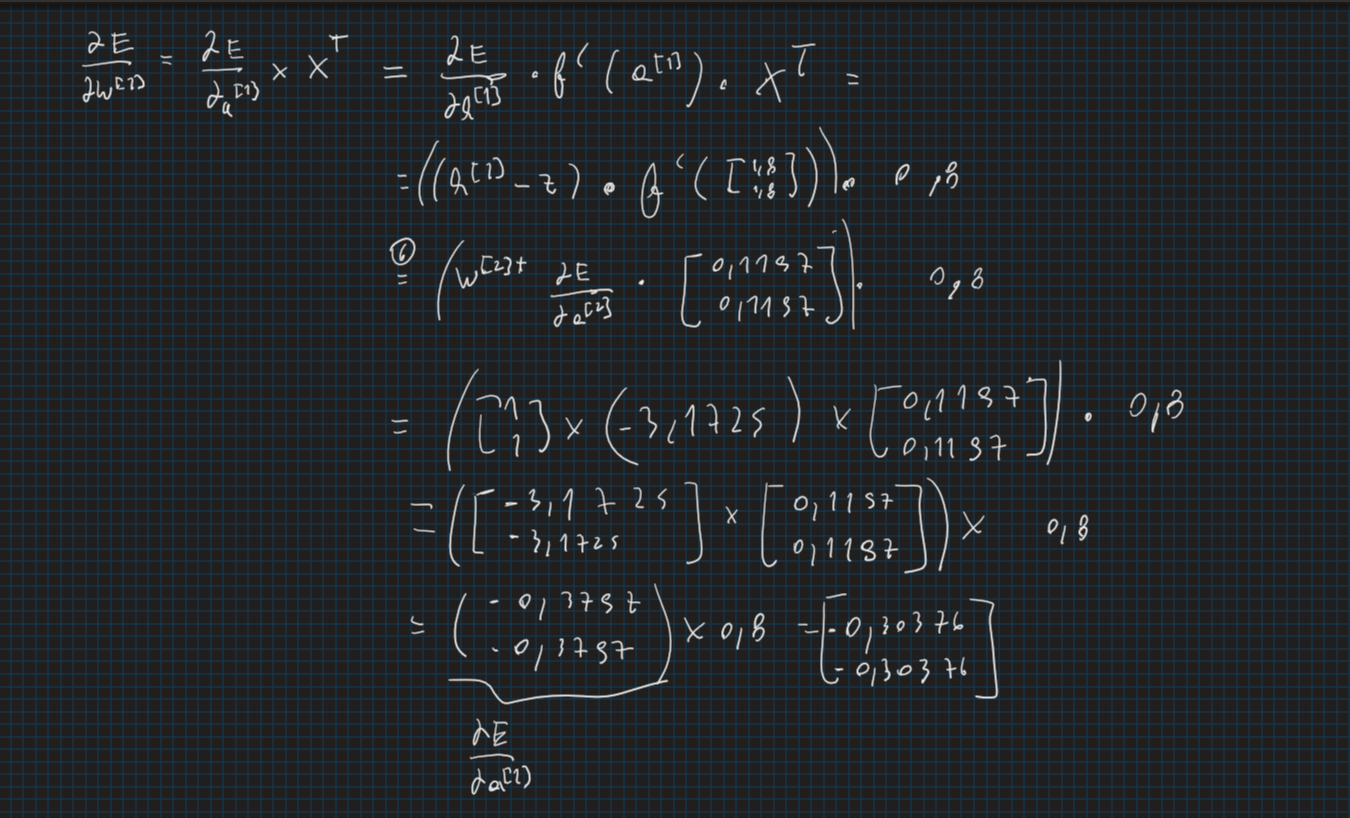 ∂E/∂W^[1] = ∂E/∂a^[1] × X^T = ∂E/∂z^[1] · f'(a^[1]) · X^T =
= ((a^[1] - z) · f'([1,8 1,8])) · 0,8
⑥ = (W^[2]T ∂E/∂a^[2] · [0,1197 0,1197]) · 0,8
= ([1 1] × (-3,1725) × [0,1197 0,1197]) · 0,8
= ([-3,1725 -3,1725] × [0,1197 0,1197]) × 0,8
= (-0,3797 -0,3797) × 0,8 = [-0,30376 -0,30376]
∂E/∂a^[1]